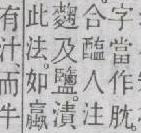 字當作肬
合醢人注
麴及鹽。漬
此法。如蠃
有汁。而牛